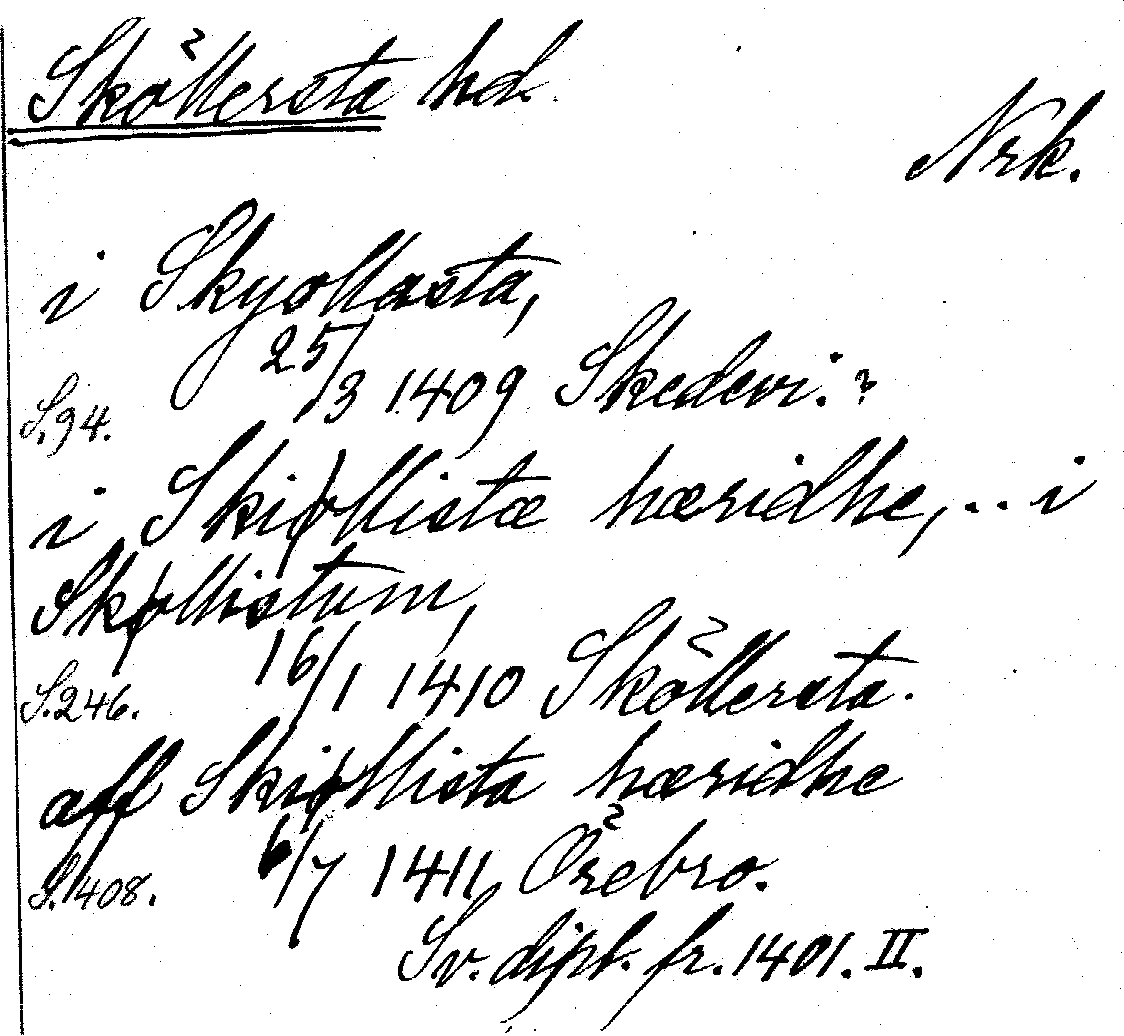 Sköllersta hd.
Nrk.
i Skyøllasta,
S. 94. 25/3 1409 Skedevi.?
i Skiøllistæ hæridhe, ... i
Skøllistum,
S. 246. 16/1 1410 Sköllersta.
aff Skiøllista hæridhe
S. 408. 6/7 1411 Örebro.
Sv. dipl. fr. 1401. II.